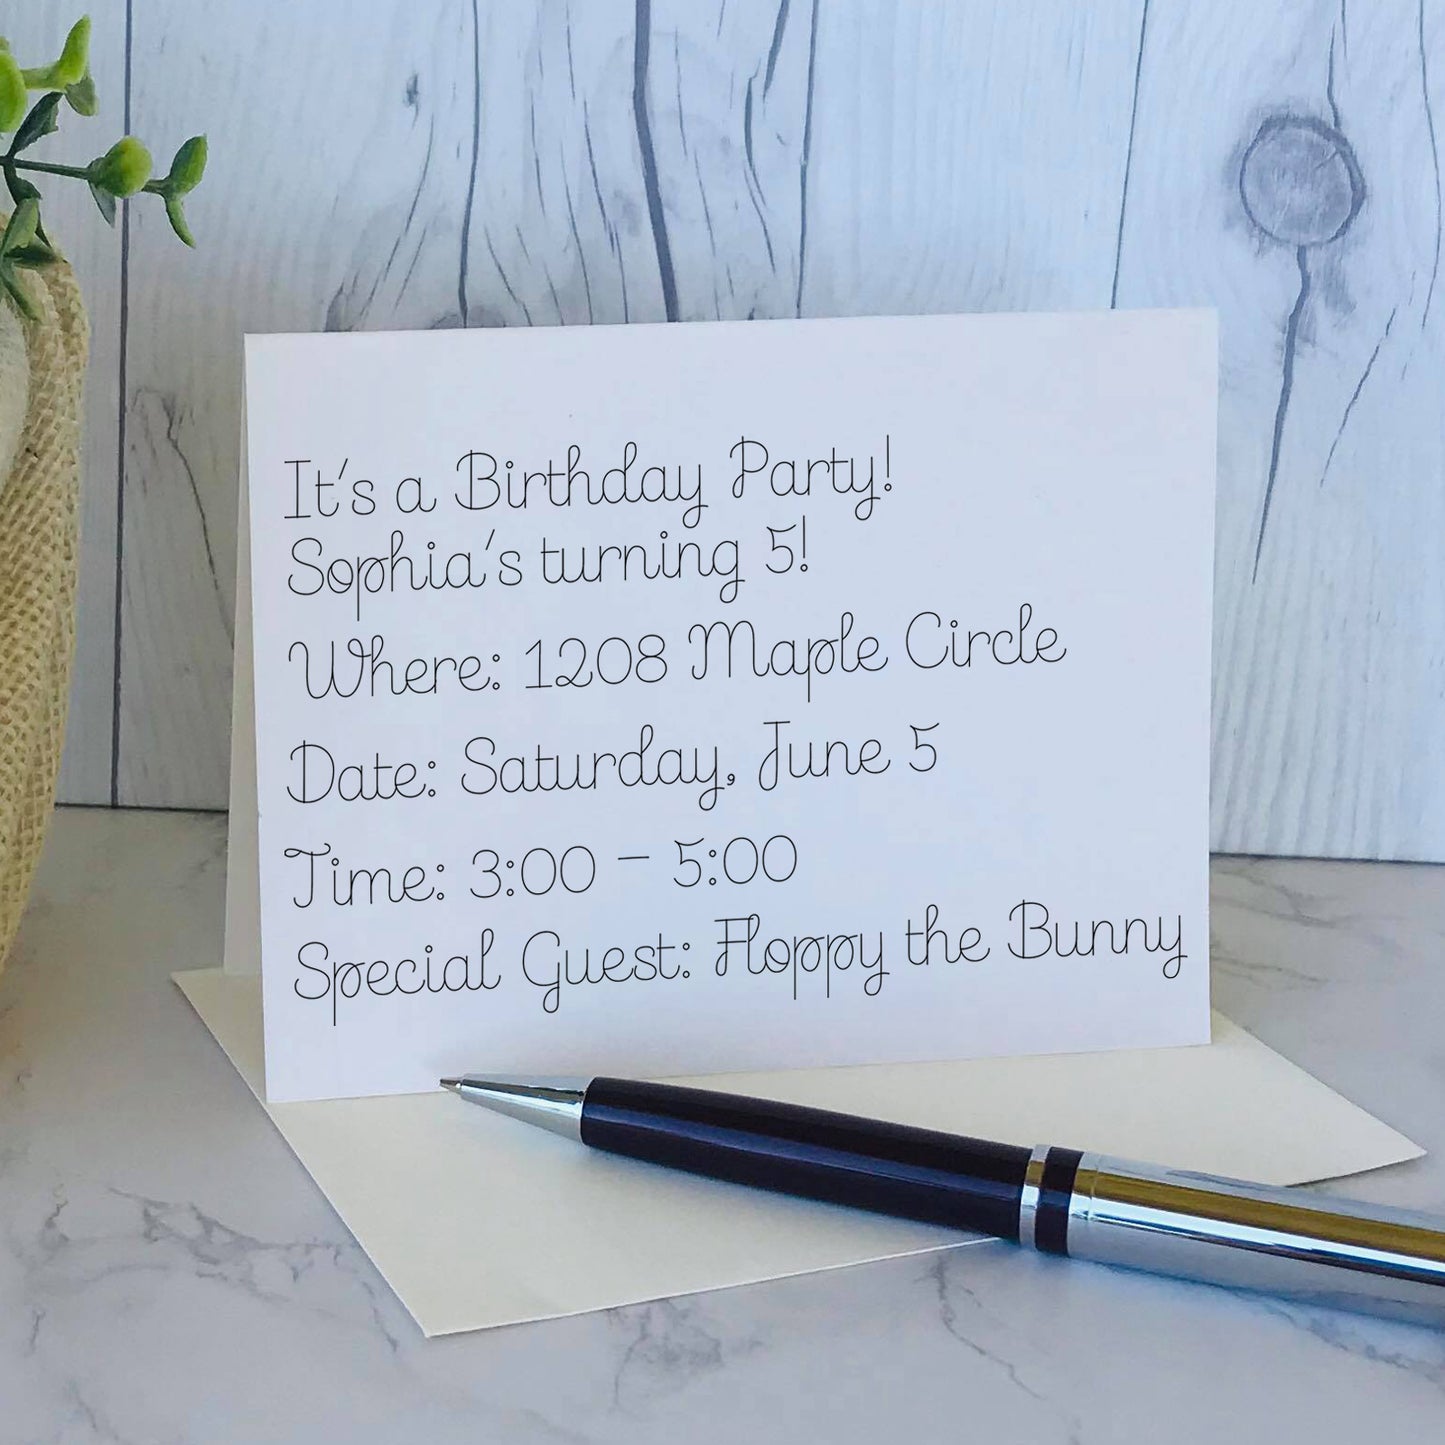 It's a Birthday Party!
Sophia's turning 5!
Where: 1208 Maple Circle
Date: Saturday, June 5
Time: 3:00 – 5:00
Special Guest: Floppy the Bunny